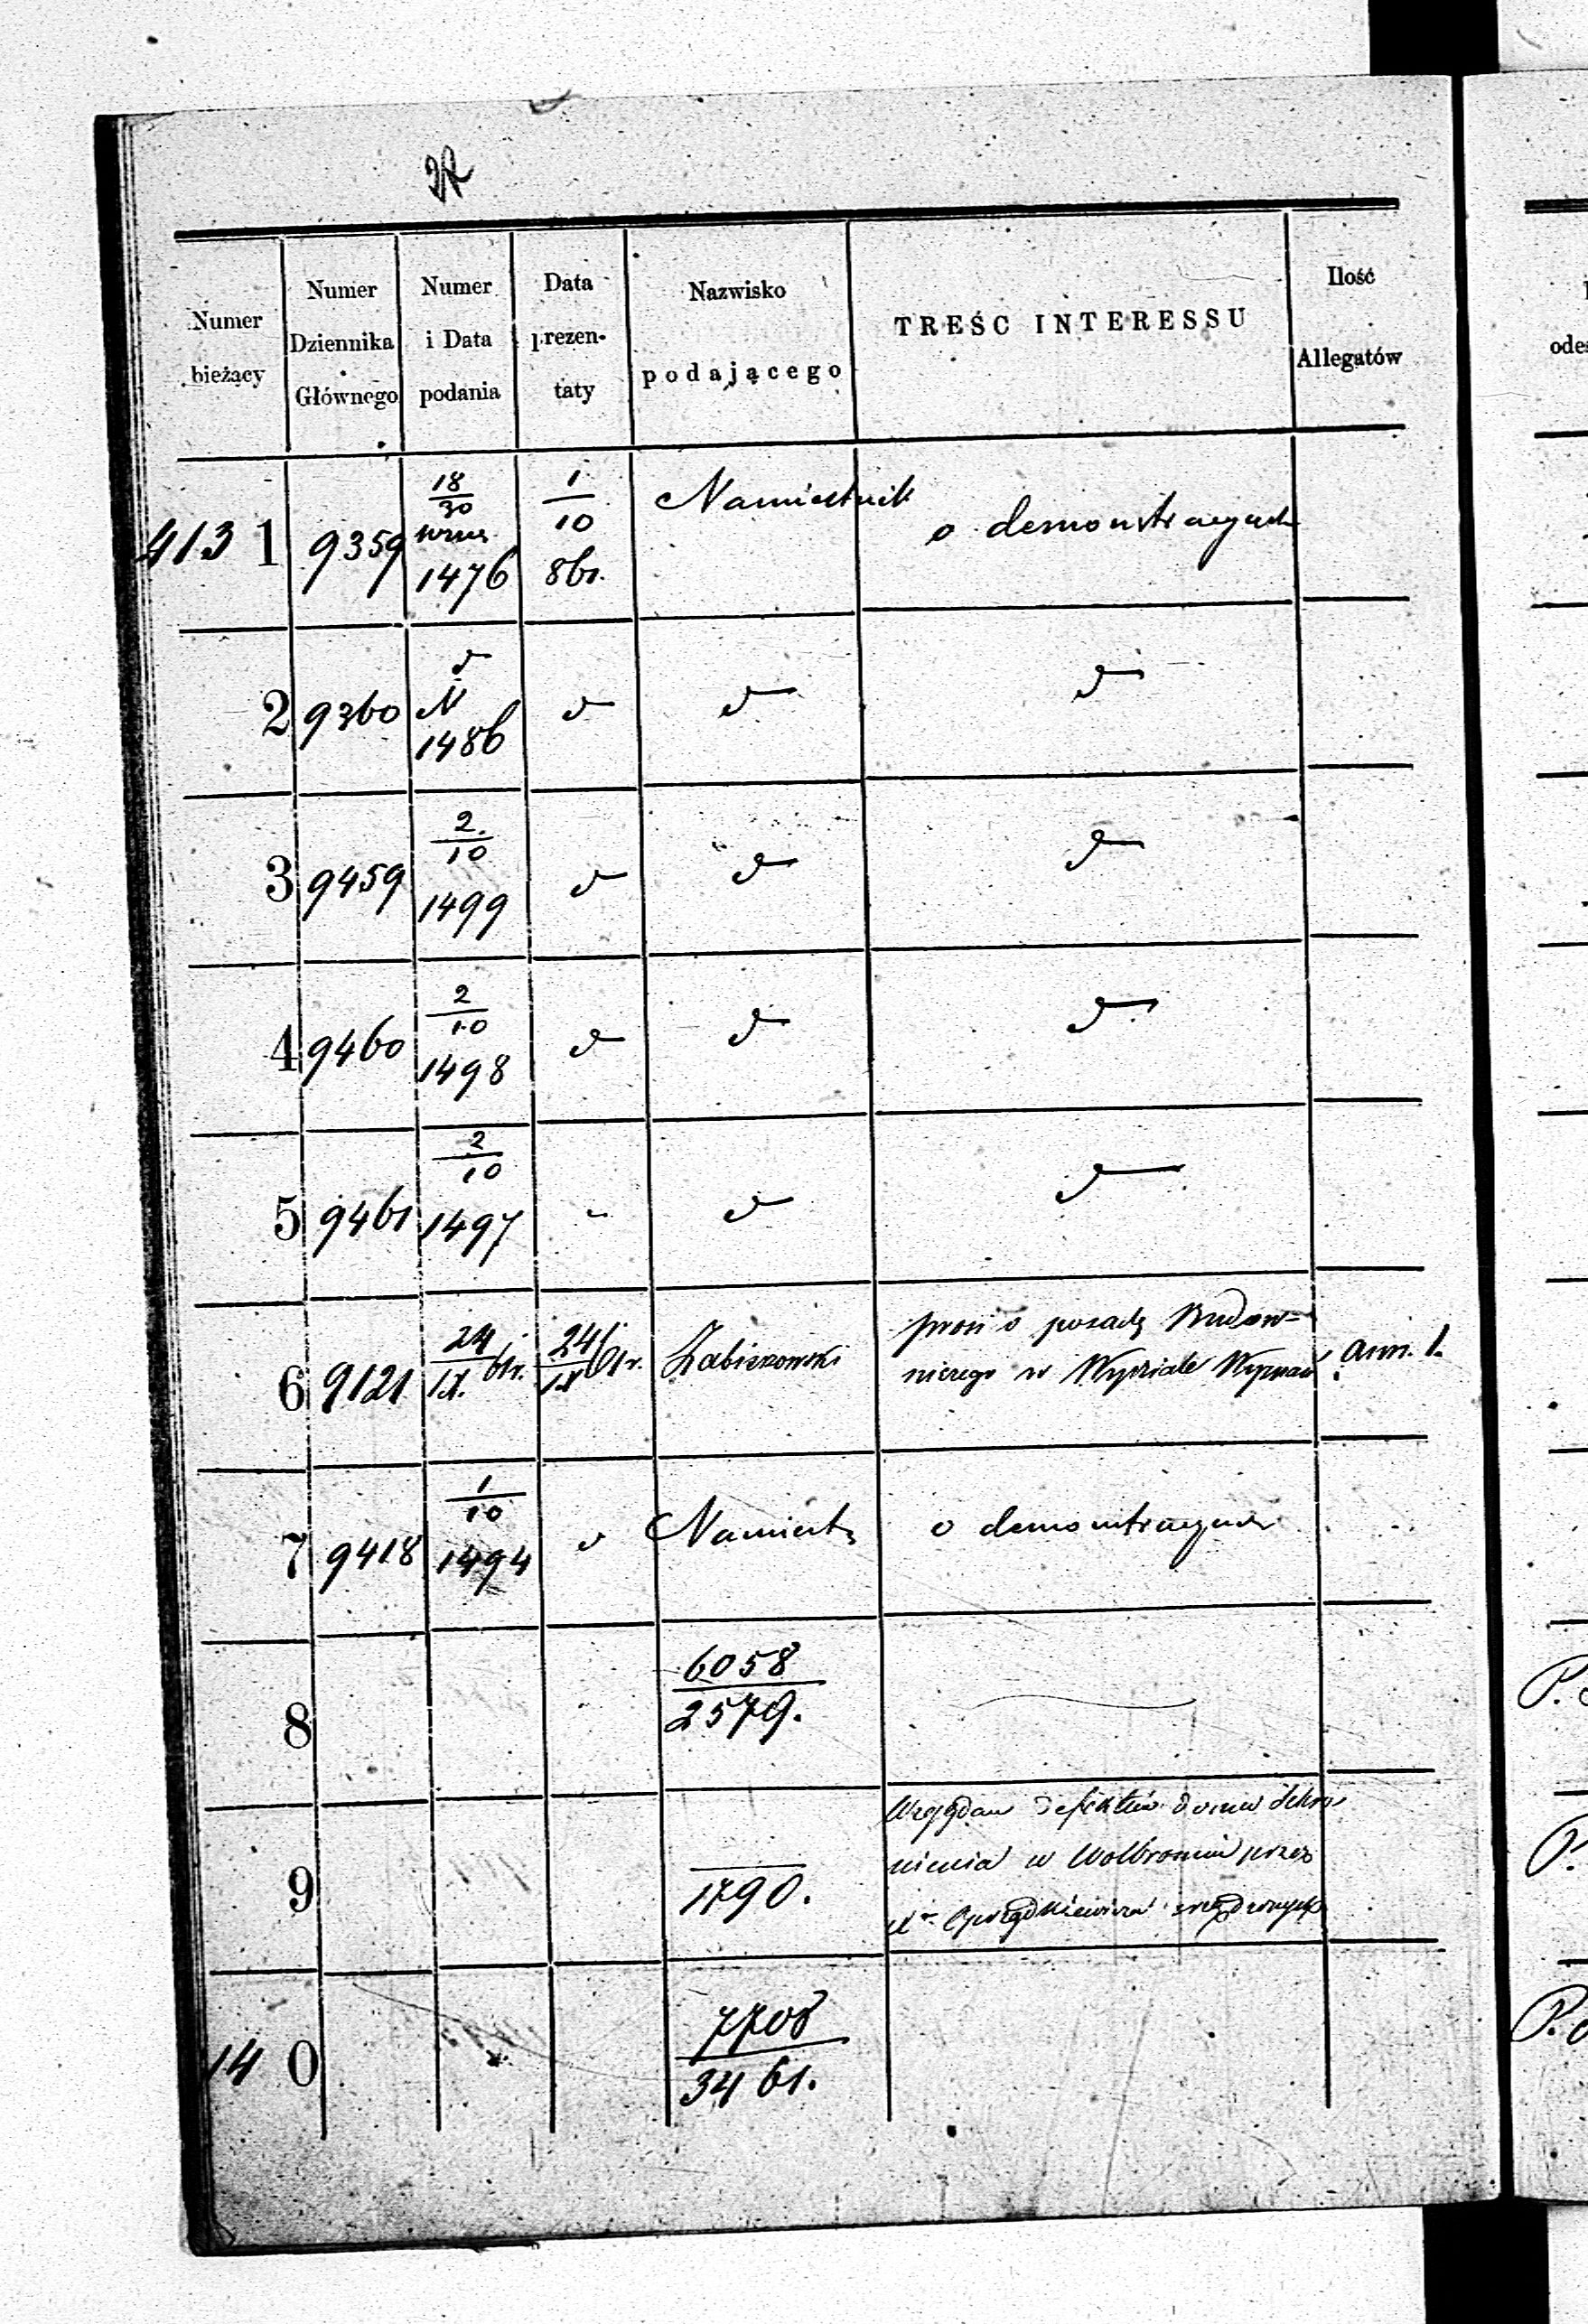 Numer bieżący
Numer Dziennika Głównego
Numer i Data podania
Data prezen- taty
Nazwisko podającego
TREŚĆ INTERESSU
Ilość Allegatów
413 1 9359 18/30 wrzes 1476 1/10 8br. Namiestnik o demonstracyach
2 9360 d N 1486 d d d
3 9459 2/10 1499 d d d
4 9460 2/10 1498 d d d
5 9461 2/10 1497 " d d
6 9121 24/IX 61r. 24/IX 61r. Żabierzowski prosi o posadę Budow=
niczego w Wydziale Wyznań ann. 1.
7 9418 1/10 1494 d Namiestn o demonstracyach
8 6058/2579.
9 1790. Względem defektów domu schro
nienia w Wolbromiu przez
zrządzonych
14 0 7708/3461.